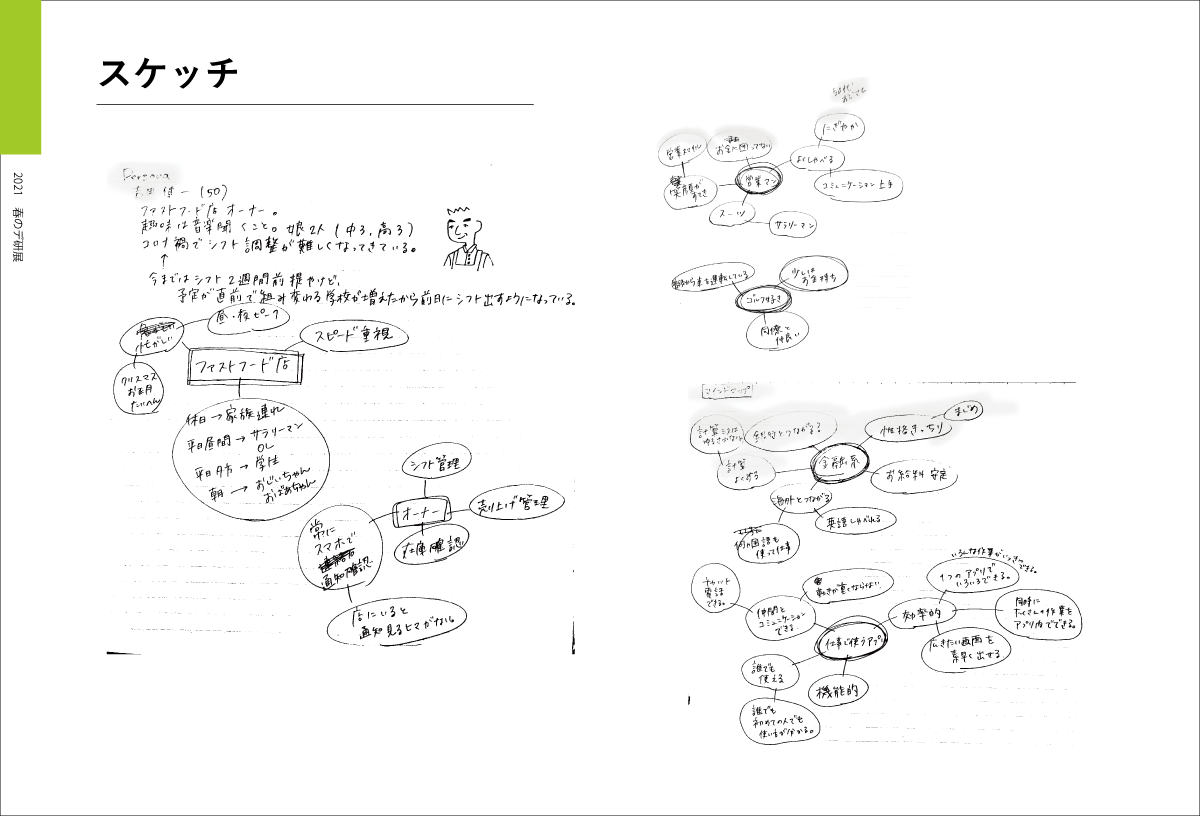 スケッチ
2021 春のデ研展
Persona
健一 (50)
ファストフード店 オーナー。
趣味は音楽聞くこと。娘2人 (中3, 高3)
コロナ禍でシフト調整が難しくなってきている。
↑
今まではシフト2週間前提やけど、
予定が直前で組み変わる学校が増えたから前日にシフト出すようになっている。
昼・夜ピーク
忙しい
スピード重視
ファストフード店
クリスマス
お正月
たいへん
休日→家族連れ
平日昼間→サラリーマン
OL
平日夕方→学生
朝→おじいちゃん
おばあちゃん
シフト管理
オーナー
売り上げ管理
在庫確認
常に
スマホで
通知確認
店にいると
通知見るヒマがない。
にぎやか
お金に困ってない
よくしゃべる
笑顔が
すてき
営業マン
コミュニケーション上手
スーツ
サラリーマン
車を運転している
少しは
お金持ち
ゴルフ好き
同僚と
仲良い
マインドマップ
まじめ
計算ミスは
ゆるさない
金銭とつながる?
性格きっちり
金融系
計算
よくする
お給料 安定
海外とつながる
英語しゃべれる
何か国語も
使って仕事
いろんな作業がいっきにできる。
1つのアプリで
いろいろできる。
チャット
電話
できる。
動きが重くならない
仲間と
コミュニケーション
できる
効率的
同時に
たくさんの作業を
アプリ内でできる。
仕事で使うアプリ
広きたい画面を
素早く出せる
誰でも
使える
機能的
誰でも
初めての人でも
使い方が分かる。